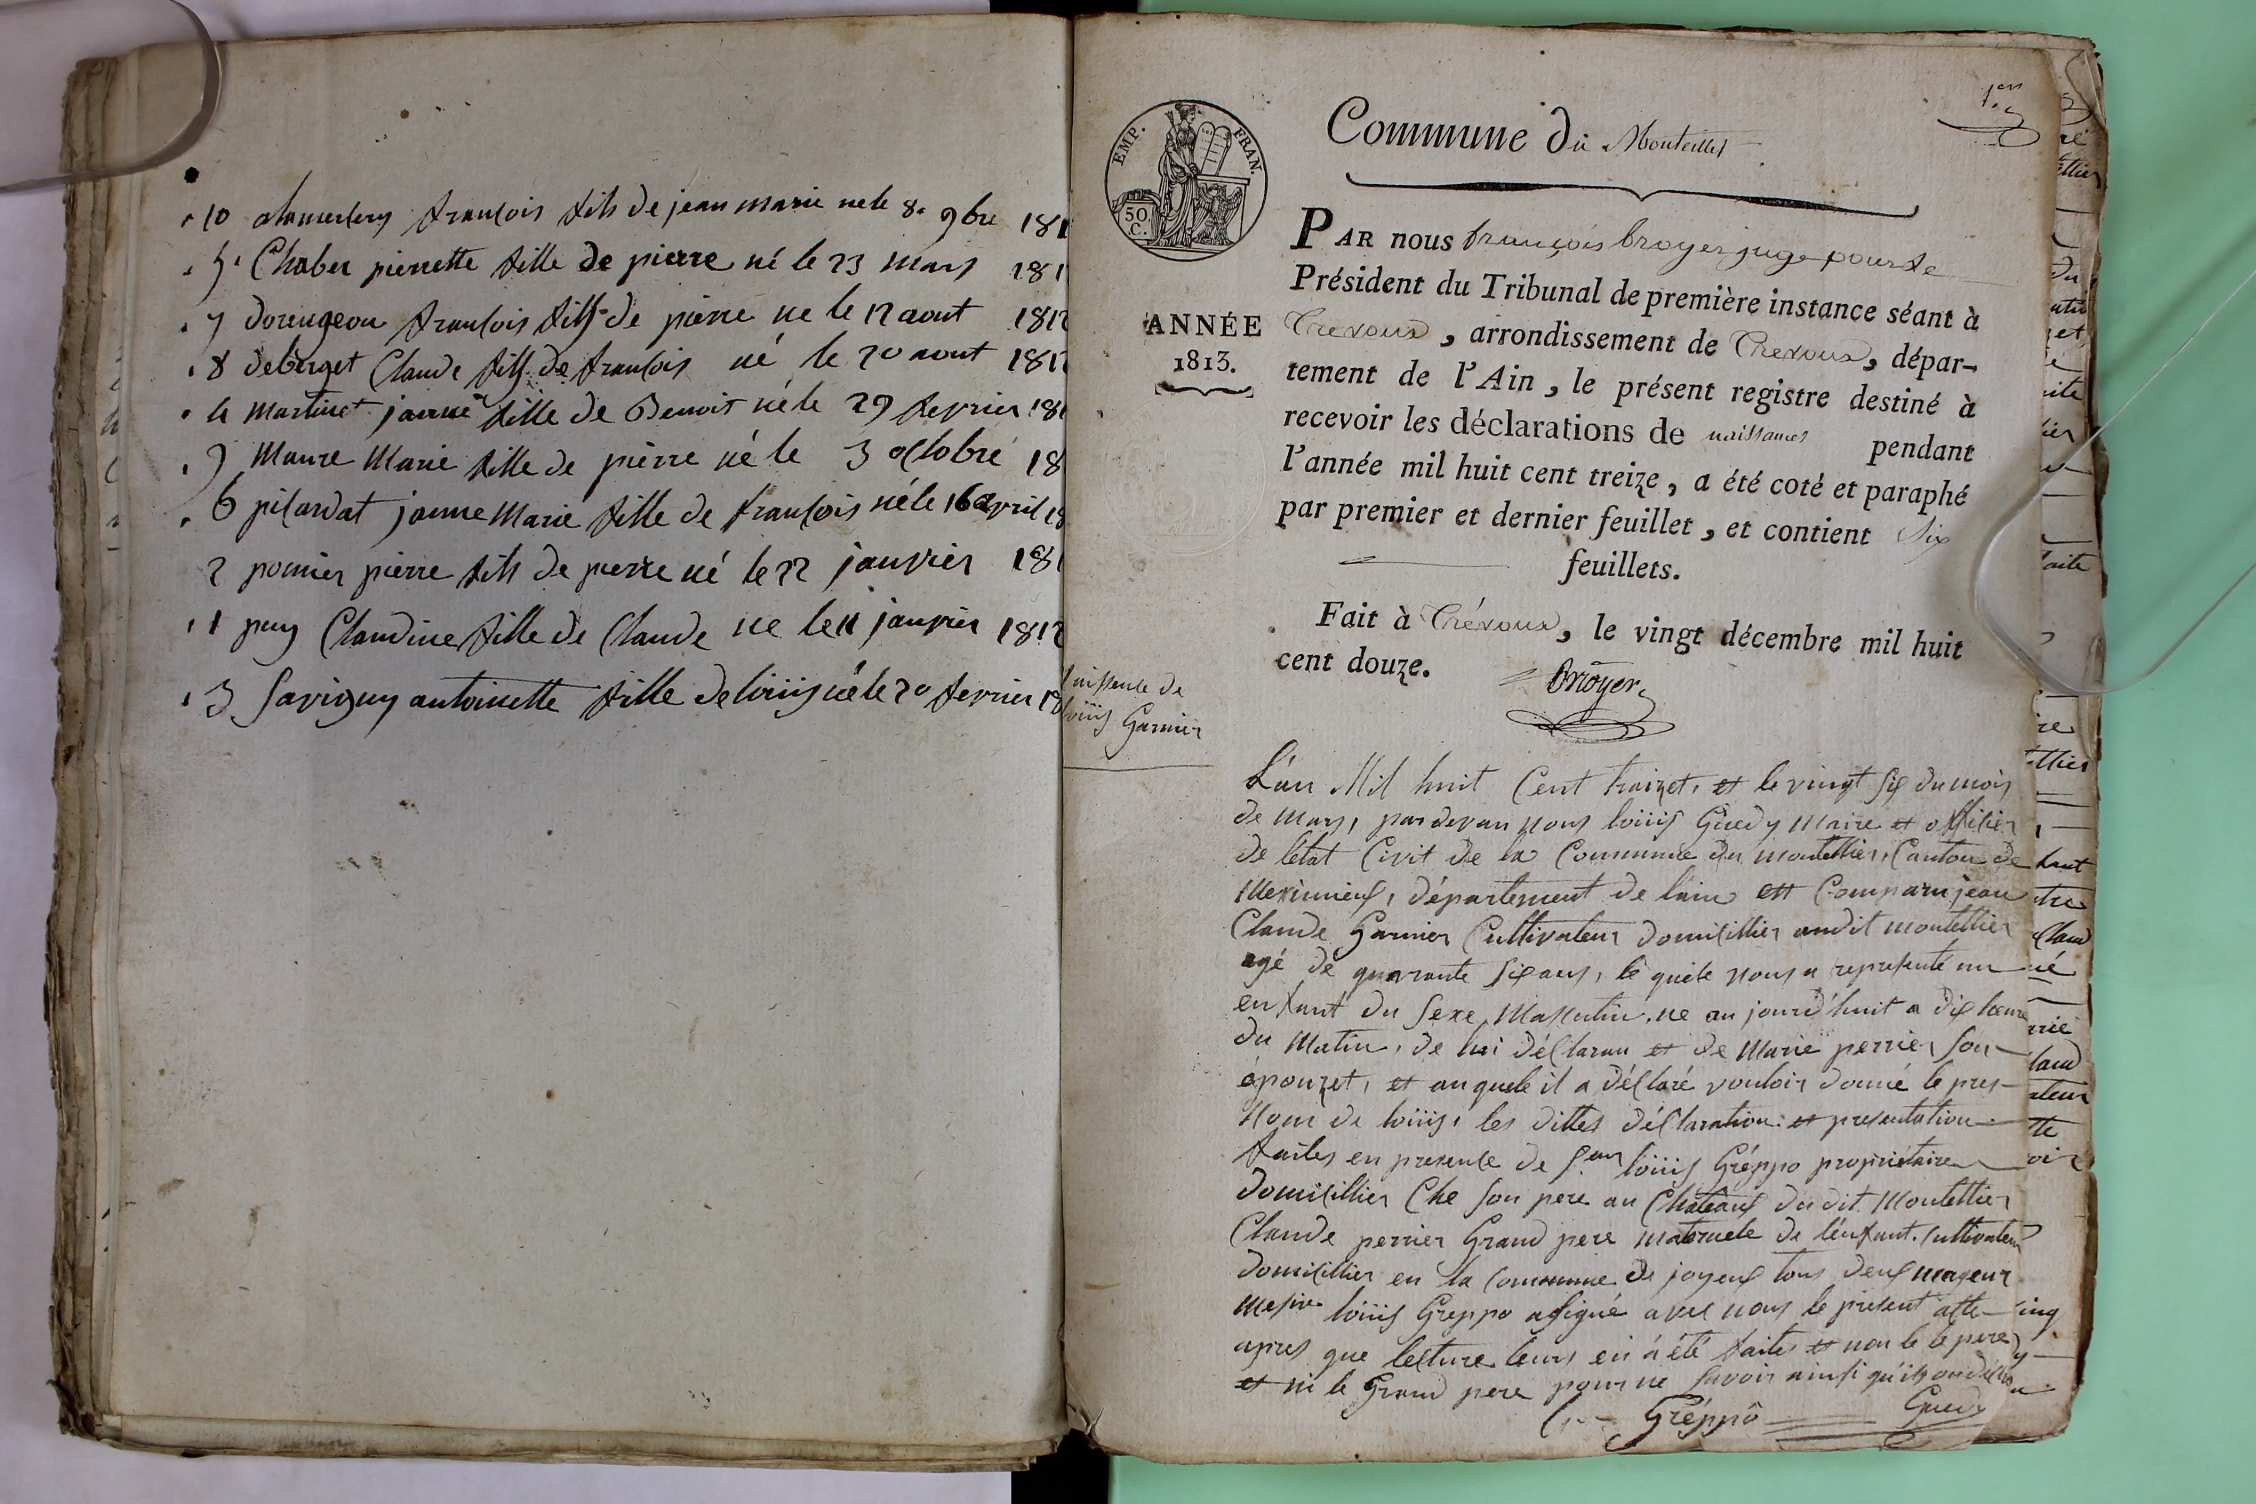 10 françois fils de jean marie né le 8. 9bre 181
5 Chaber pierrette fille de pierre né le 23 mars 181
7 dorengeon françois fils de pierre ne le 12 aout 1812
8 deberget Claude fils de françois né le 20 aout 181
4 martinet janne fille de Benoit né le 29 fevrier 181
9 Maure Marie fille de pierre né le 3 octobre 18
6 picardat janne Marie fille de françois né le 16 avril 18
2 ponnier pierre fils de pierre né le 22 janvier 181
1 puy Claudine fille de Claude ne le 11 janvier 1812
3 Savigny antoinette fille de loüis né le 20 fevrier 18
1er
Commune du Montellier
EMP. FRAN.
50 C.
PAR nous françois broyer juge pour le
Président du Tribunal de première instance séant à
ANNÉE
1813.
Trevoux, arrondissement de Trevoux, dépar-
tement de l'Ain, le présent registre destiné à
recevoir les déclarations de naissances pendant
l'année mil huit cent treize, a été coté et paraphé
par premier et dernier feuillet, et contient six
feuillets.
Fait à Trévoux, le vingt décembre mil huit
cent douze.
Broyer
naissence de
loüis Garnier
L'an Mil huit Cent traizet, et le vingt six du mois
de mars, pardevan nous loüis Guedy Maire et officier
de l'état Civit de la Commune du montellier, Canton de
Meximieux, département de l'ain est Comparu jean
Claude Garnier Cultivateur domicillier audit montellier
agé de quarante six ans, le quele nous a representé un
enfant du sexe Masculin, ne au jourd'huit a dix heure
du Matin, de lui déclaran et de Marie perrier son
épouzet, et au quele il a déclaré vouloir donné le pres-
Nom de loüis, les dittes déclaration et presentation
faites en presence de Sieur loüis Gréppo propriétaire
domicillier Che son pere au Châteaux du dit Montellier
Claude perrier Grand pere maternele de l'enfant. Cultivateur
domicillier en la commune de joyeux tous deux mageur
loüis Greppo a signé avec nous le présent acte
apres que lecture leurs en a été faites et non le pere
et ni le Grand pere pour ne savoir ainsi qu'ils on
Gréppo Guedy